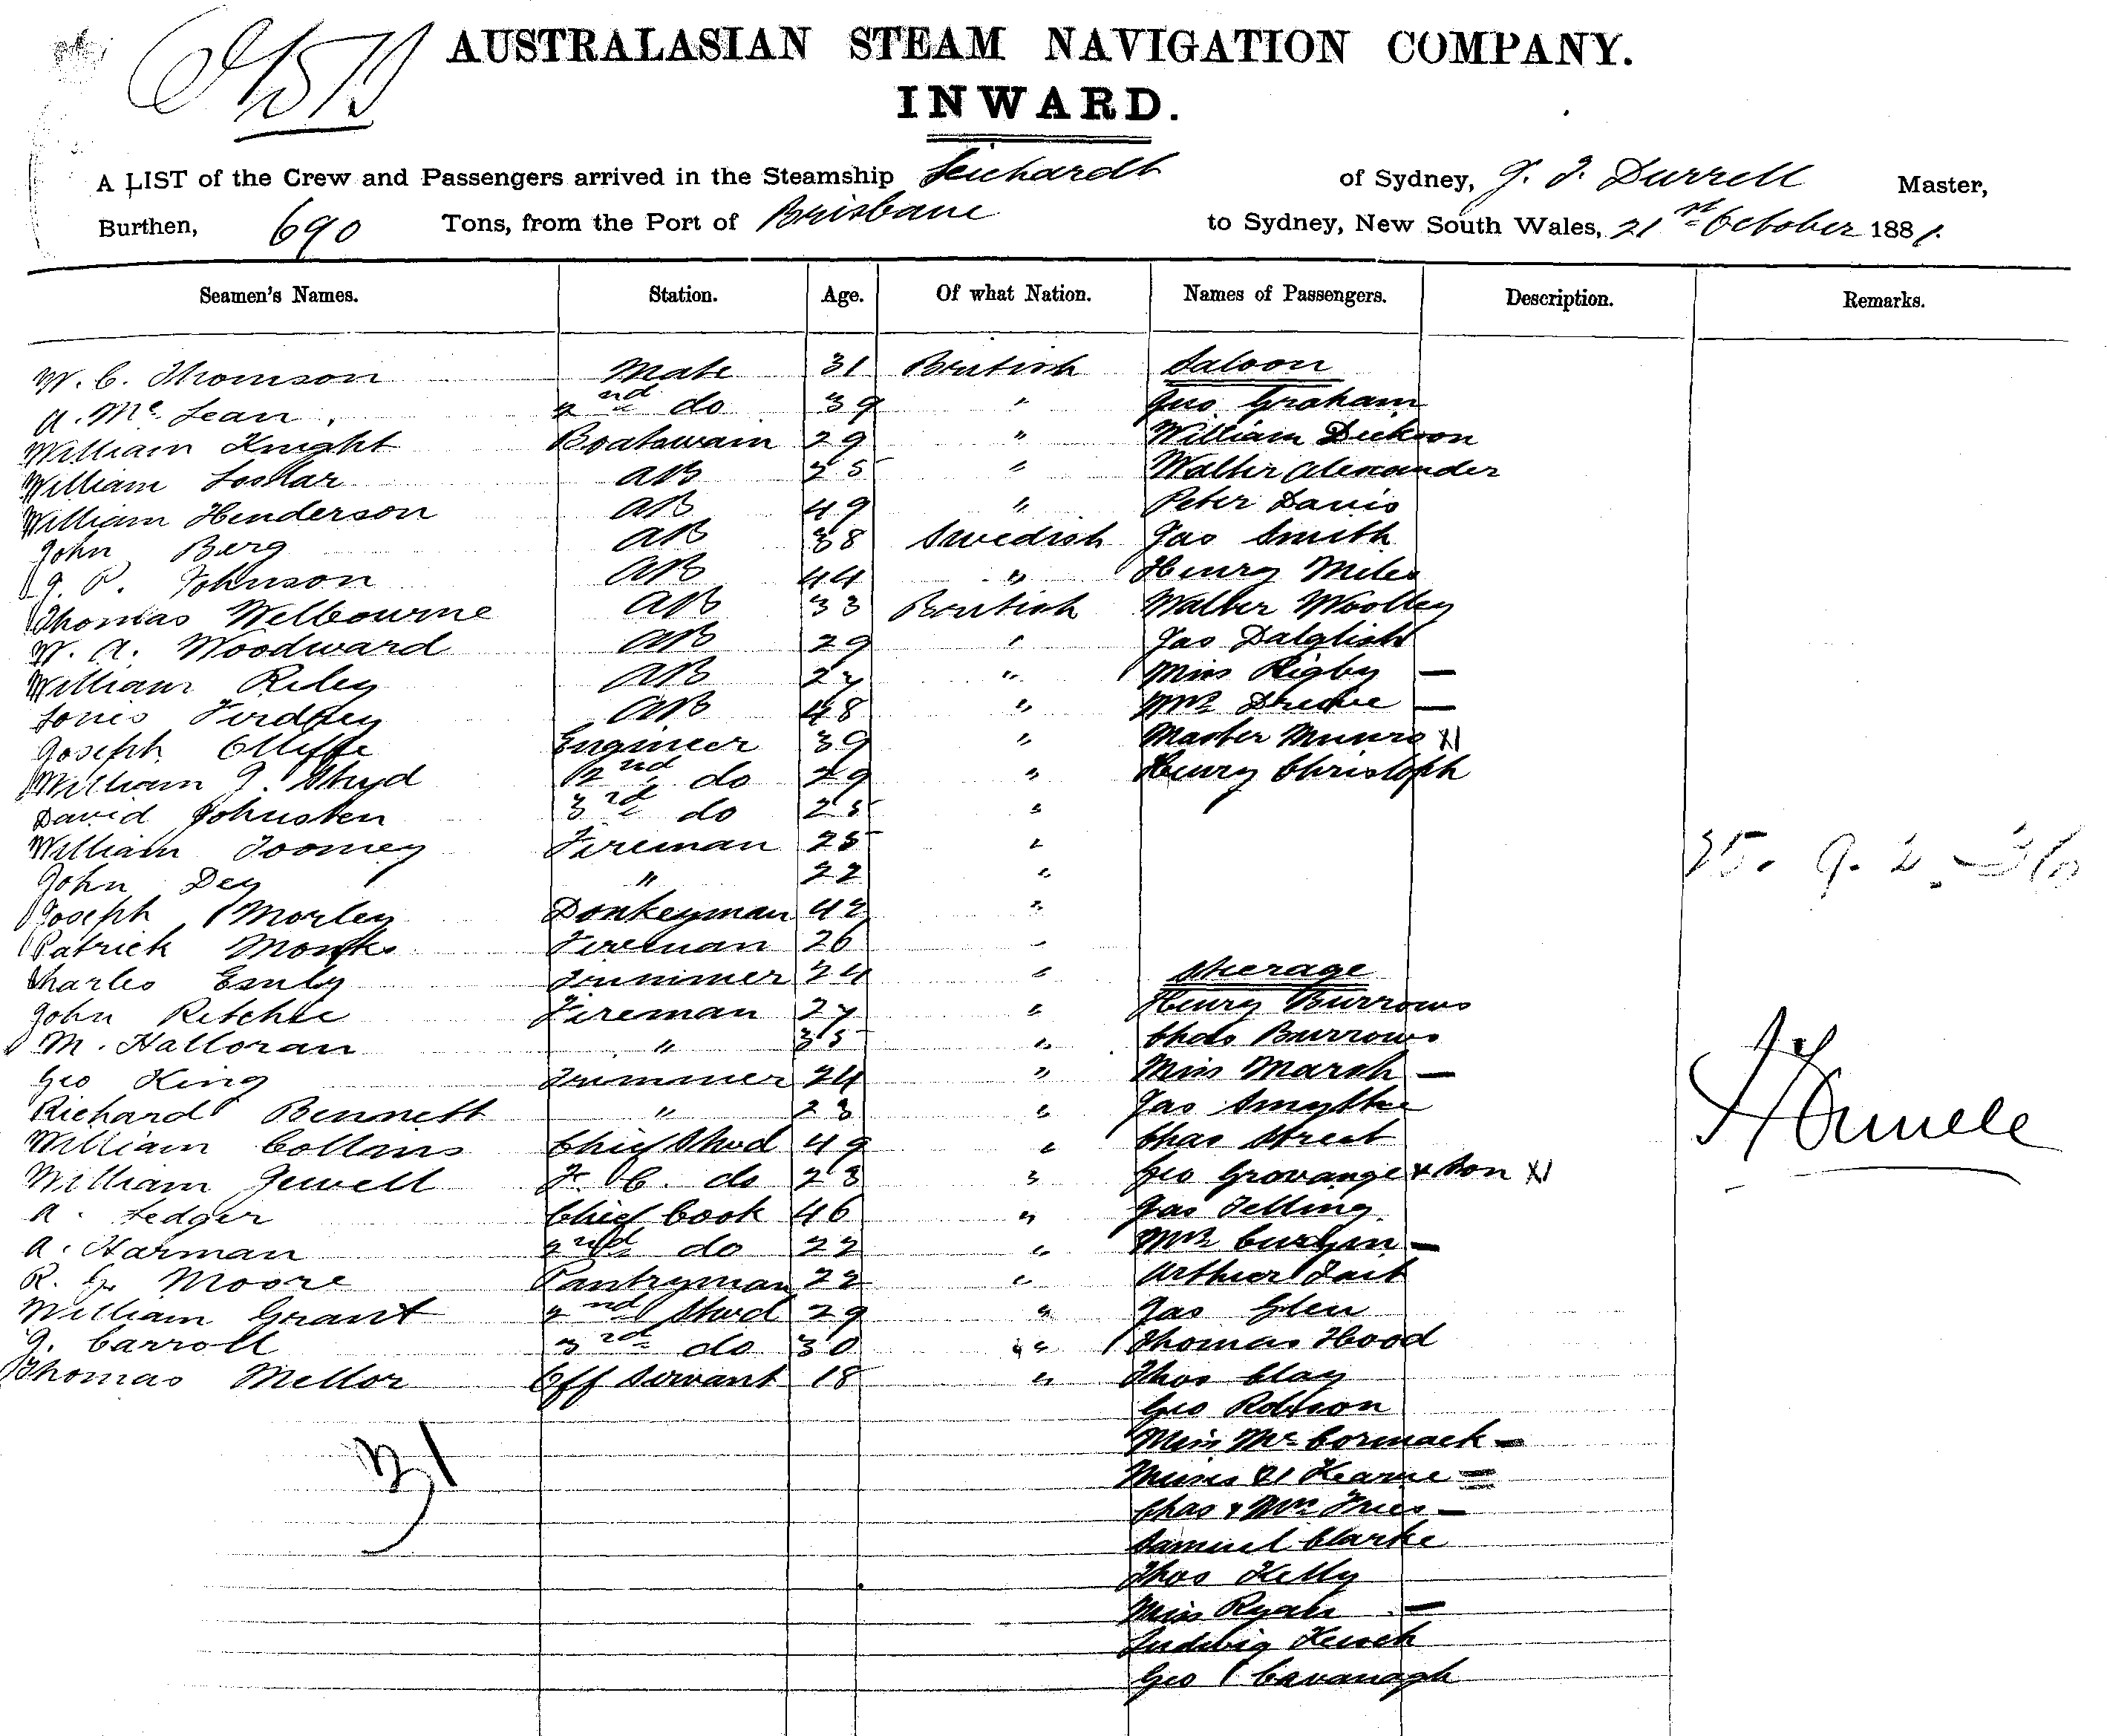 AUSTRALASIAN STEAM NAVIGATION COMPANY.
INWARD.
A LIST of the Crew and Passengers arrived in the Steamship Leichardt of Sydney, J. J. Durrell Master,
Burthen, 690 Tons, from the Port of Brisbane to Sydney, New South Wales, 21st October 1881.
Seamen's Names. Station. Age. Of what Nation. Names of Passengers. Description. Remarks.
W. C. Thomson Mate 31 British Saloon
A. Mc Lean 2nd do 39 " Geo Graham
William Knight Boatswain 29 " William Dickson
William Loskar AB 25 " Walter Alexander
William Henderson AB 49 " Peter Davis
John Berg AB 38 Swedish Jas Smith
J. P. Johnson AB 44 " Henry Miles
Thomas Welbourne AB 33 British Walter Woolley
W. A. Woodward AB 29 " Jas Dalglish
William Riley AB 27 " Miss Rigby —
AB 48 " Mrs —
Joseph Olliffe Engineer 39 " Master Munro
William J. Shyd 2nd do 29 " Henry Christoph
David Johnston 3rd do 25 "
William Toomey Fireman 25 "
John Dey " 22 "
Joseph Morley Donkeyman 42 "
Patrick Monks Fireman 26 "
Charles Emly Trimmer 24 " Steerage
John Ritchie Fireman 27 " Henry Burrows
M. Halloran " 35 " Chas Burrows
Geo King Trimmer 24 " Miss Marsh —
Richard Bennett " 23 " Jas Smythe
William Collans Chief Stwd 49 " Chas Street
William Jewell F. C. do 23 " Geo Grovange & Son
A. Ledger Chief Cook 46 " Jas Telling
A. Harman 2nd do 22 " Mrs —
R. G. Moore Pantryman 22 " Arthur Tait
William Grant 2nd Stwd 29 " Jas Glen
J. Carroll 3rd do 30 " Thomas Hood
Thomas Mellor Off Servant 18 " Thos Clay
Geo Robson
31 Miss Mc Cormack —
Misses Kearne =
Chas & Mrs Fries —
Samuel Clarke
Thos Kelly
Miss Ryan —
Ludwig
Geo Cavanagh